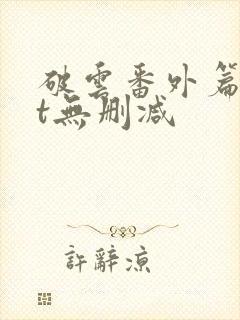 破雲番外篇
t無刪減
許辭涼